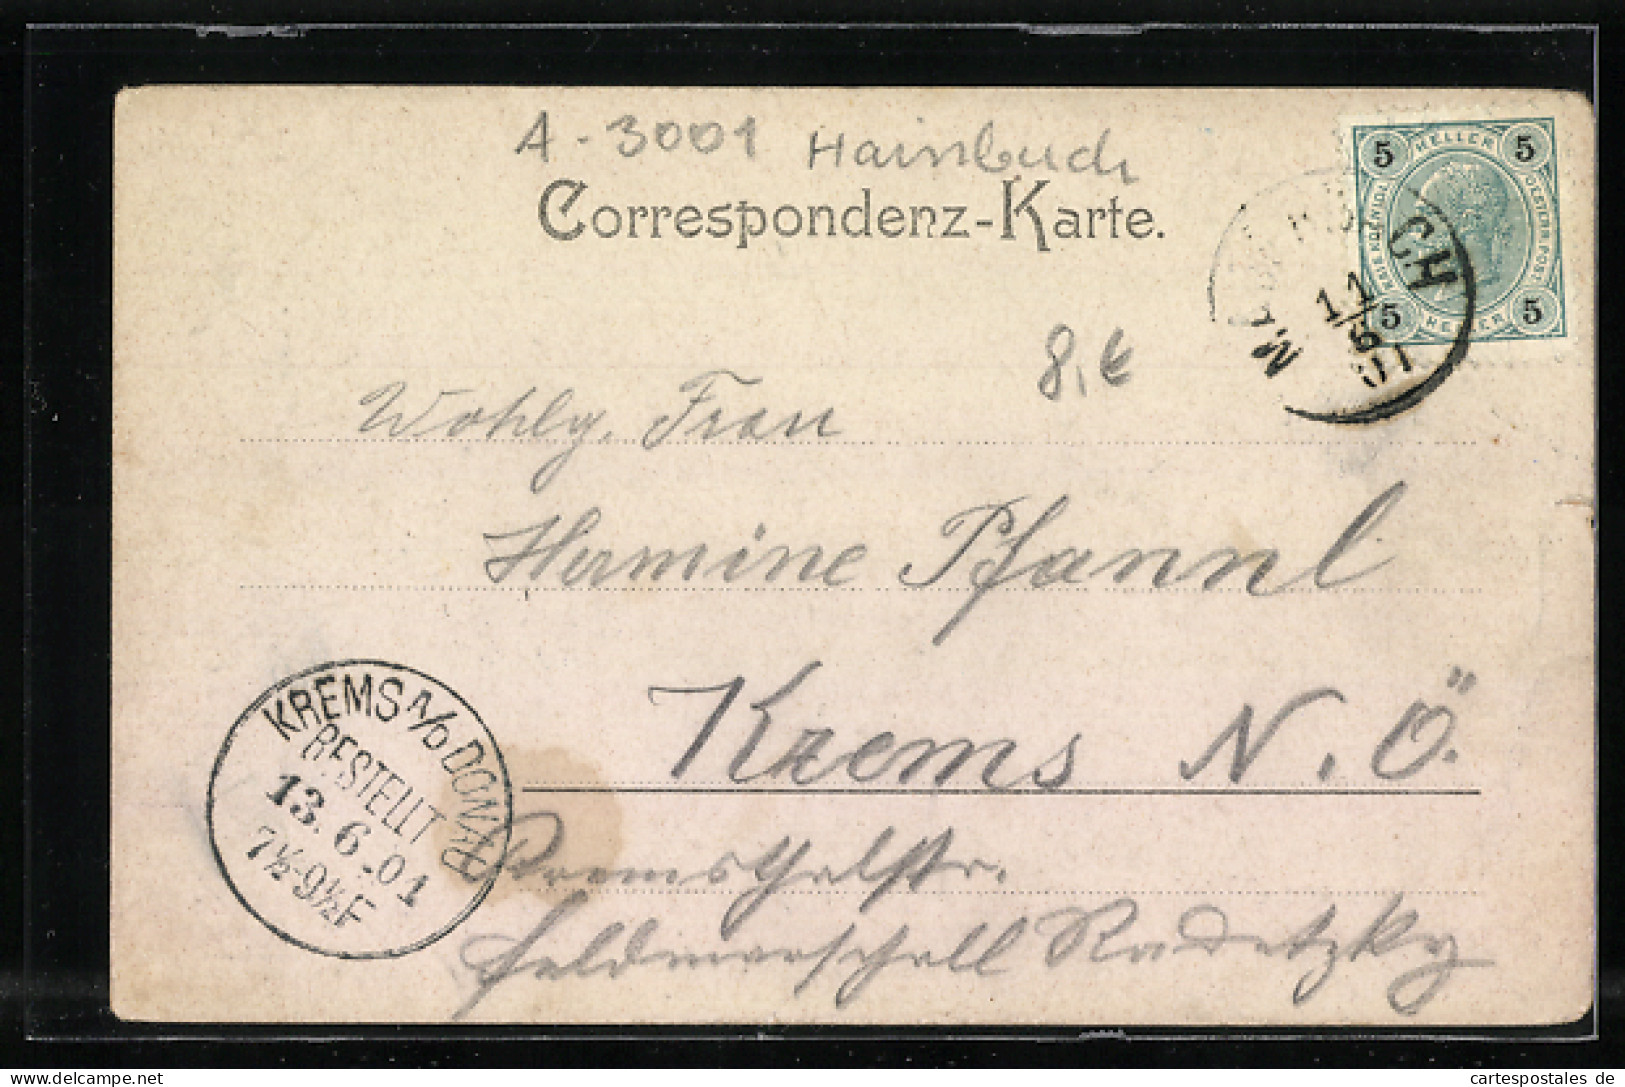 A-3001 Hainbuch
Correspondenz-Karte.
5 HELLER 5
OESTERR. POST
KAIS. KOENIGL.
5 HELLER 5
CH
11/6
01
8,€
Wohlg. Frau
Hermine Pfannl
Krems N. Ö.
Kremsthalstr.
Feldmarschall Radetzky
KREMS A/D DONAU
BESTELLT
13. 6 .01
7½-9½F
www.cartespostales.eu
cartespostales de